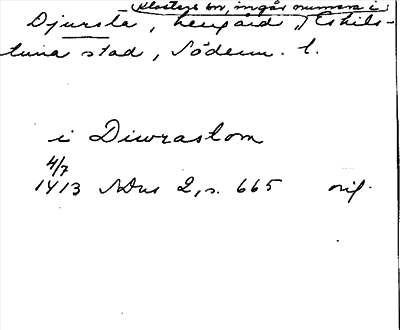 Klosters sn, ingår numera i
Djursta, herrgård, Eskils-
tuna stad, Söderm. l.
i Diwrastom
4/7
1413 SDns 2, s. 665 orig.